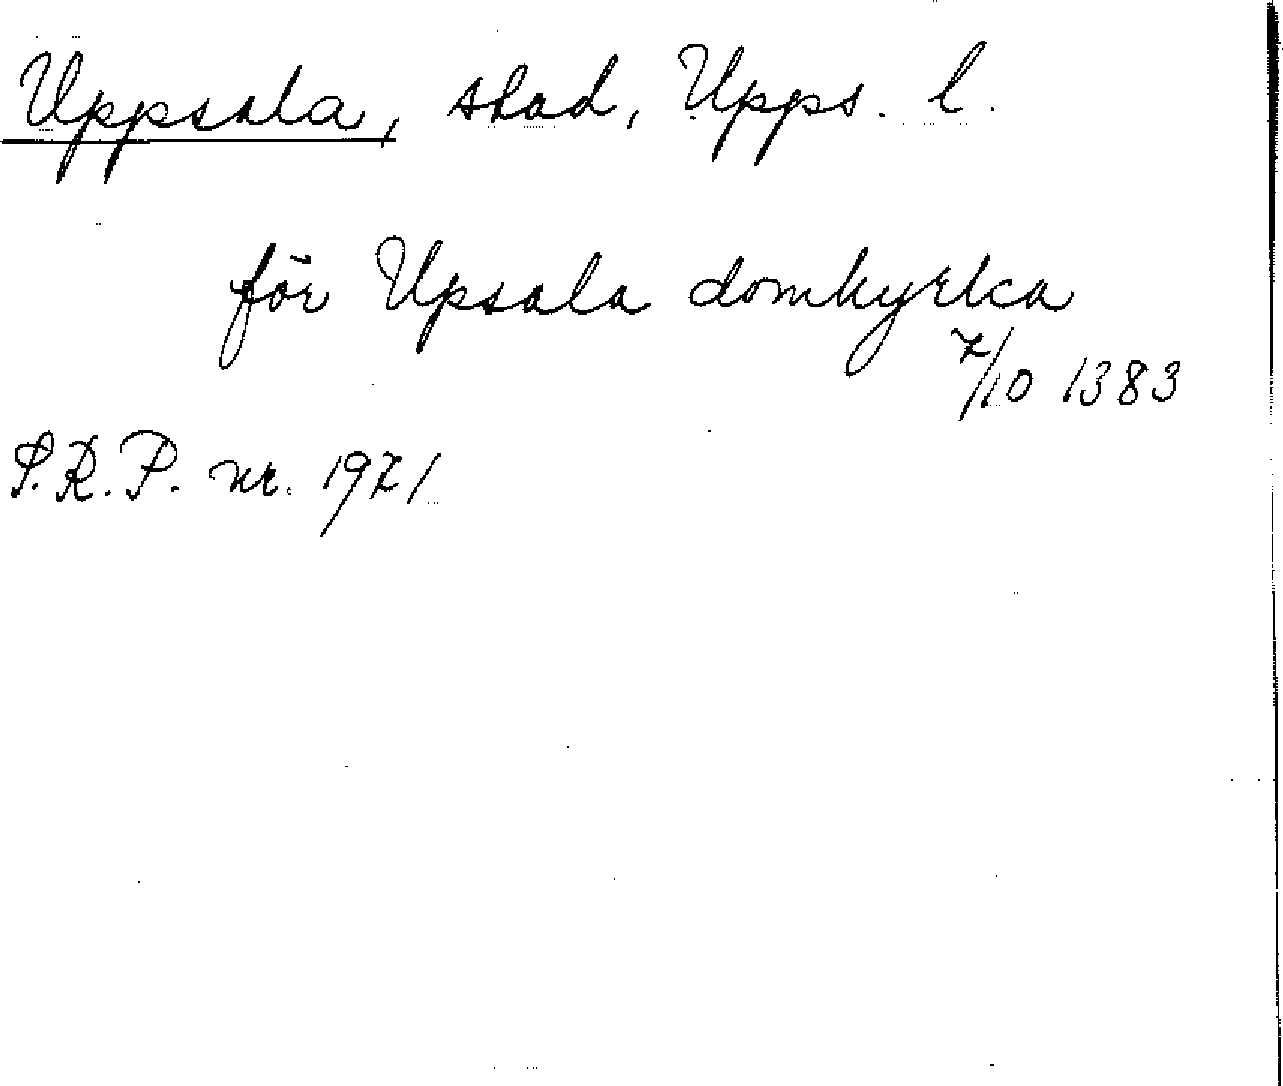 Uppsala, stad, Upps. l.
för Upsala domkyrka
7/10 1383
S.R.P. nr. 1971